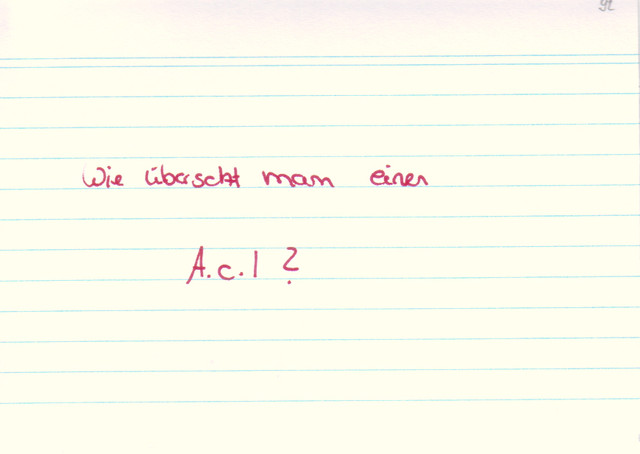 92
Wie übersetzt man einen
A.c.I ?